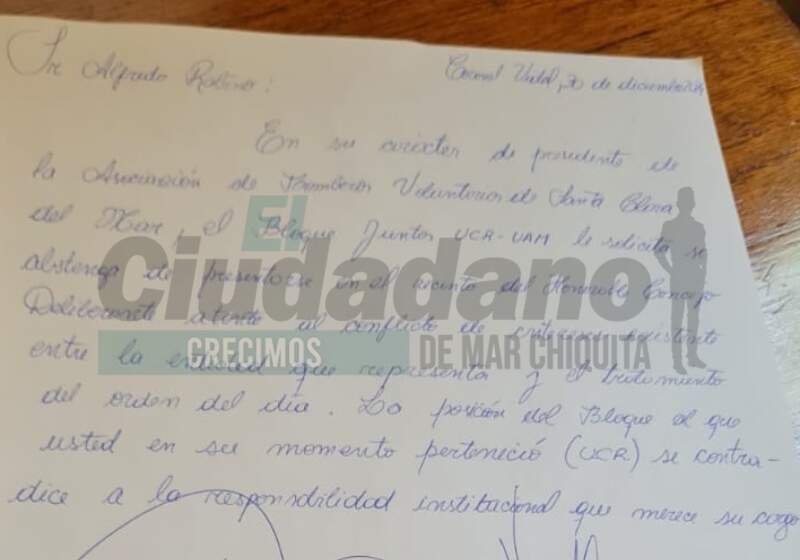 Sr Alfredo Rabino:
Coronel Vidal, 20 de diciembre
En su carácter de presidente de
la Asociación de Bomberos Voluntarios de Santa Clara
del Mar, el Bloque Juntos UCR-UAM le solicita se
abstenga de presentarse en el recinto del Honorable Concejo
Deliberante atento al conflicto de existente
entre la entidad que representa y el tratamiento
del orden del día. La posición del Bloque al que
usted en su momento perteneció (UCR) se contra-
dice a la responsabilidad institucional que merece su cargo
El
Ciudadano
CRECIMOS DE MAR CHIQUITA